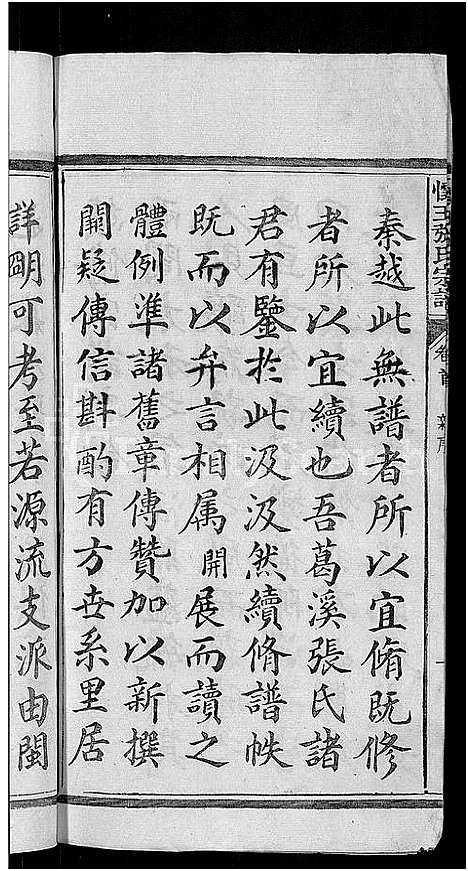 秦越此無譜者所以宜脩既修
者所以宜續也吾葛溪張氏諸
君有鑒於此汲汲然續脩譜帙
既而以弁言相属開展而讀之
體例準諸舊章傳贊加以新撰
闕疑傳信斟酌有方世系里居
詳明可考至若源流支派由閩
張氏宗譜
卷首
新序